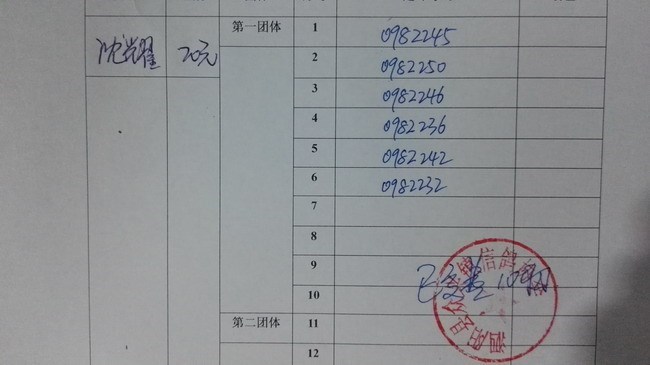 沈光耀 20元 第一团体 1 0982245
2 0982250
3 0982246
4 0982236
5 0982242
6 0982232
7
8
9
10
第二团体 11
12
泗阳县 信鸽